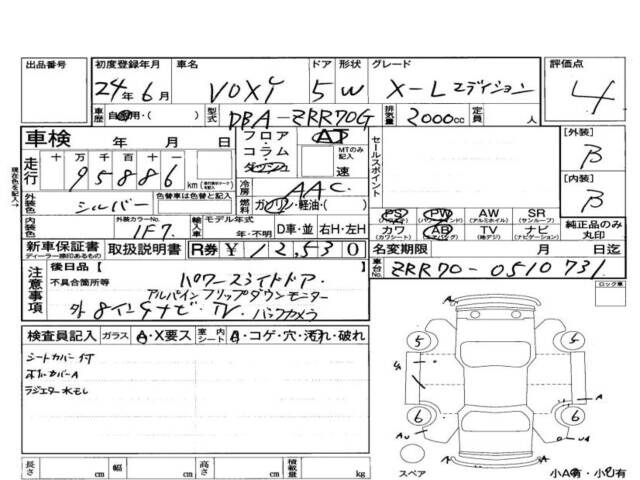 出品番号 初度登録年月 車名 ドア 形状 グレード 評価点
24年6月 VOXY 5 W X-L エディション 4
車歴 自家用・( ) 型式 DBA-ZRR70G 排気量 2000cc 定員 人
車検 年 月 日 フロア コラム ダッシュ AT MTのみ記入 速 セールスポイント [外装] B
走行 十 万 千 百 十 一 95886 km 冷房 AAC [内装] B
外装色 シルバー 色替車は色替と記入 燃料 ガソリン・軽油・( )
内装色 外装カラーNo. 1F7 輸入車 モデル年式 年・不明 D車・並 右H・左H
PS (パワーステアリング) PW (パワーウインド) AW (アルミホイル) SR (サンルーフ)
カワ (カワシート) AB (エアバッグ) TV (地デジ) ナビ (ナビゲーション) 純正品のみ丸印
新車保証書 ディーラー捺印あるもの 取扱説明書 R券 ¥12,530 名変期限 月 日迄
車台No. ZRR70-0510731
現在色を記入→
注意事項 後日品 [ ]
不具合箇所等 パワースライドドア
アルパインフリップダウンモニター
外 8インチナビ・TV バックカメラ
ロック車
検査員記入 ガラス A・X要ス 室内シート A・コゲ・穴・汚れ・破れ
シートカバー付
ラジエター水もし
A
5 5
A
6 6
A
スペア 小A有・小U有
長さ cm 幅 cm 高さ cm 積載量 kg